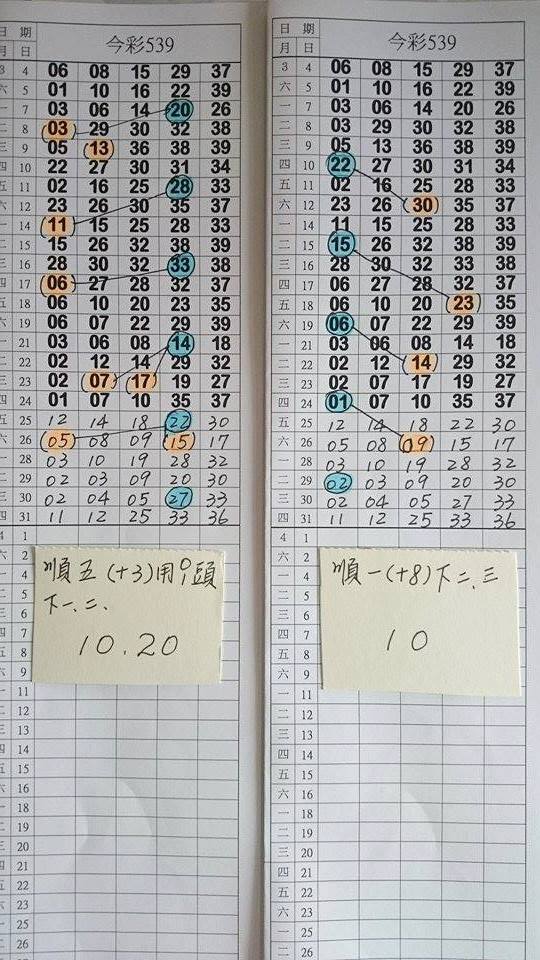 日 期
月 日
今彩539
3 4 06 08 15 29 37
六 5 01 10 16 22 39
一 7 03 06 14 20 26
二 8 03 29 30 32 38
三 9 05 13 36 38 39
四 10 22 27 30 31 34
五 11 02 16 25 28 33
六 12 23 26 30 35 37
一 14 11 15 25 28 33
二 15 15 26 32 38 39
三 16 28 30 32 33 38
四 17 06 27 28 32 37
五 18 06 10 20 23 35
六 19 06 07 22 29 39
一 21 03 06 08 14 18
二 22 02 12 14 29 32
三 23 02 07 17 19 27
四 24 01 07 10 35 37
五 25 12 14 18 22 30
六 26 05 08 09 15 17
一 28 03 10 19 28 32
二 29 02 03 09 20 30
三 30 02 04 05 27 33
四 31 11 12 25 33 36
4 1
六 2
順五(+3)用0,1頭
下一、二、
10.20
4
5
6
7
8
9
11
12
13
14
15
16
18
19
20
21
22
23
25
26
日 期
月 日
今彩539
3 4 06 08 15 29 37
六 5 01 10 16 22 39
一 7 03 06 14 20 26
二 8 03 29 30 32 38
三 9 05 13 36 38 39
四 10 22 27 30 31 34
五 11 02 16 25 28 33
六 12 23 26 30 35 37
一 14 11 15 25 28 33
二 15 15 26 32 38 39
三 16 28 30 32 33 38
四 17 06 27 28 32 37
五 18 06 10 20 23 35
六 19 06 07 22 29 39
一 21 03 06 08 14 18
二 22 02 12 14 29 32
三 23 02 07 17 19 27
四 24 01 07 10 35 37
五 25 12 14 18 22 30
六 26 05 08 09 15 17
一 28 03 10 19 28 32
二 29 02 03 09 20 30
三 30 02 04 05 27 33
四 31 11 12 25 33 36
4 1
六 2
順一(+8)下二、三
10
一 4
二 5
三 6
四 7
五 8
六 9
一 11
二 12
三 13
四 14
五 15
六 16
一 18
二 19
三 20
四 21
五 22
六 23
一 25
二 26